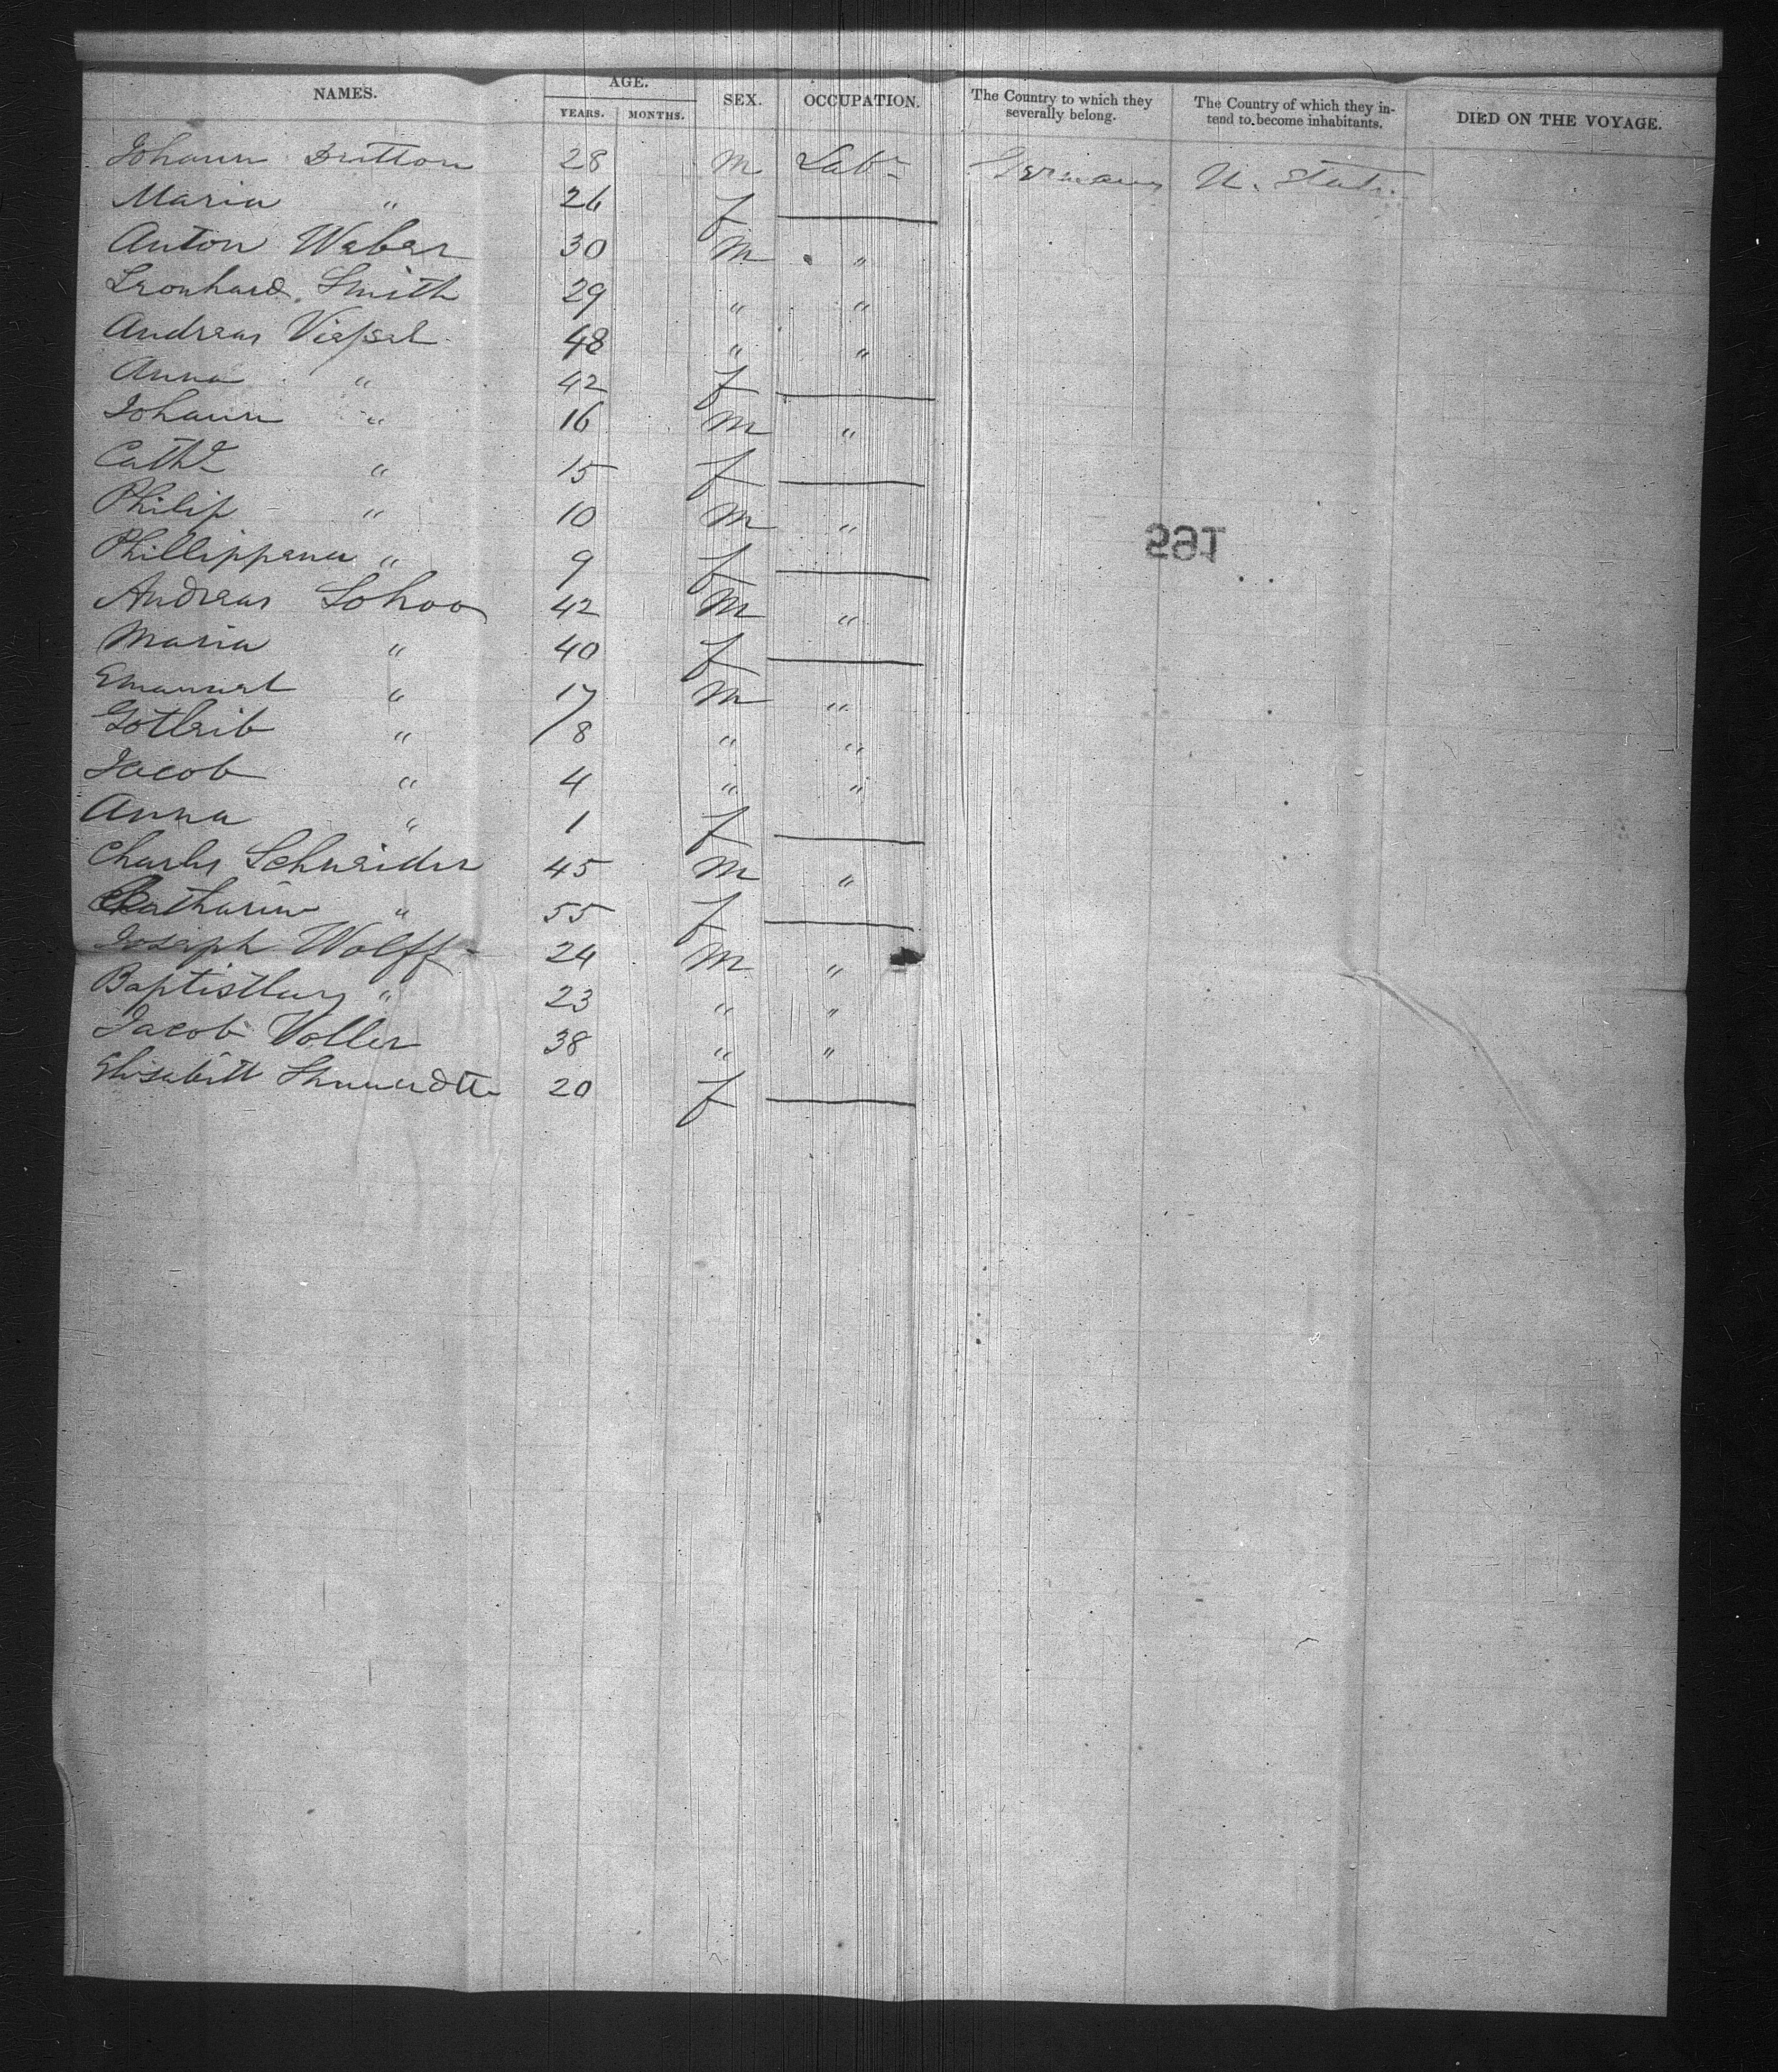 NAMES. AGE. SEX. OCCUPATION. The Country to which they severally belong. The Country of which they in-tend to become inhabitants. DIED ON THE VOYAGE.
YEARS. MONTHS.
Johann Dritton 28 M Labr Germany U. States
Maria " 26 f —
Anton Weber 30 M "
Leonhard Smith 29 " "
Andreas 48 " "
Anna " 42 f —
Johann " 16 M "
Cathr " 15 f —
Philip " 10 M "
Phillippena " 9 f —
Andreas Sohoo 42 M "
Maria " 40 f —
Emanuel " 17 M "
Gotleib " 8 " "
Jacob " 4 " "
Anna " 1 f —
Charles Schneider 45 M "
Catharine " 55 f —
Joseph Wolff 24 M "
" 23 " "
Jacob Voller 38 " "
Elisabett 20 f —
591